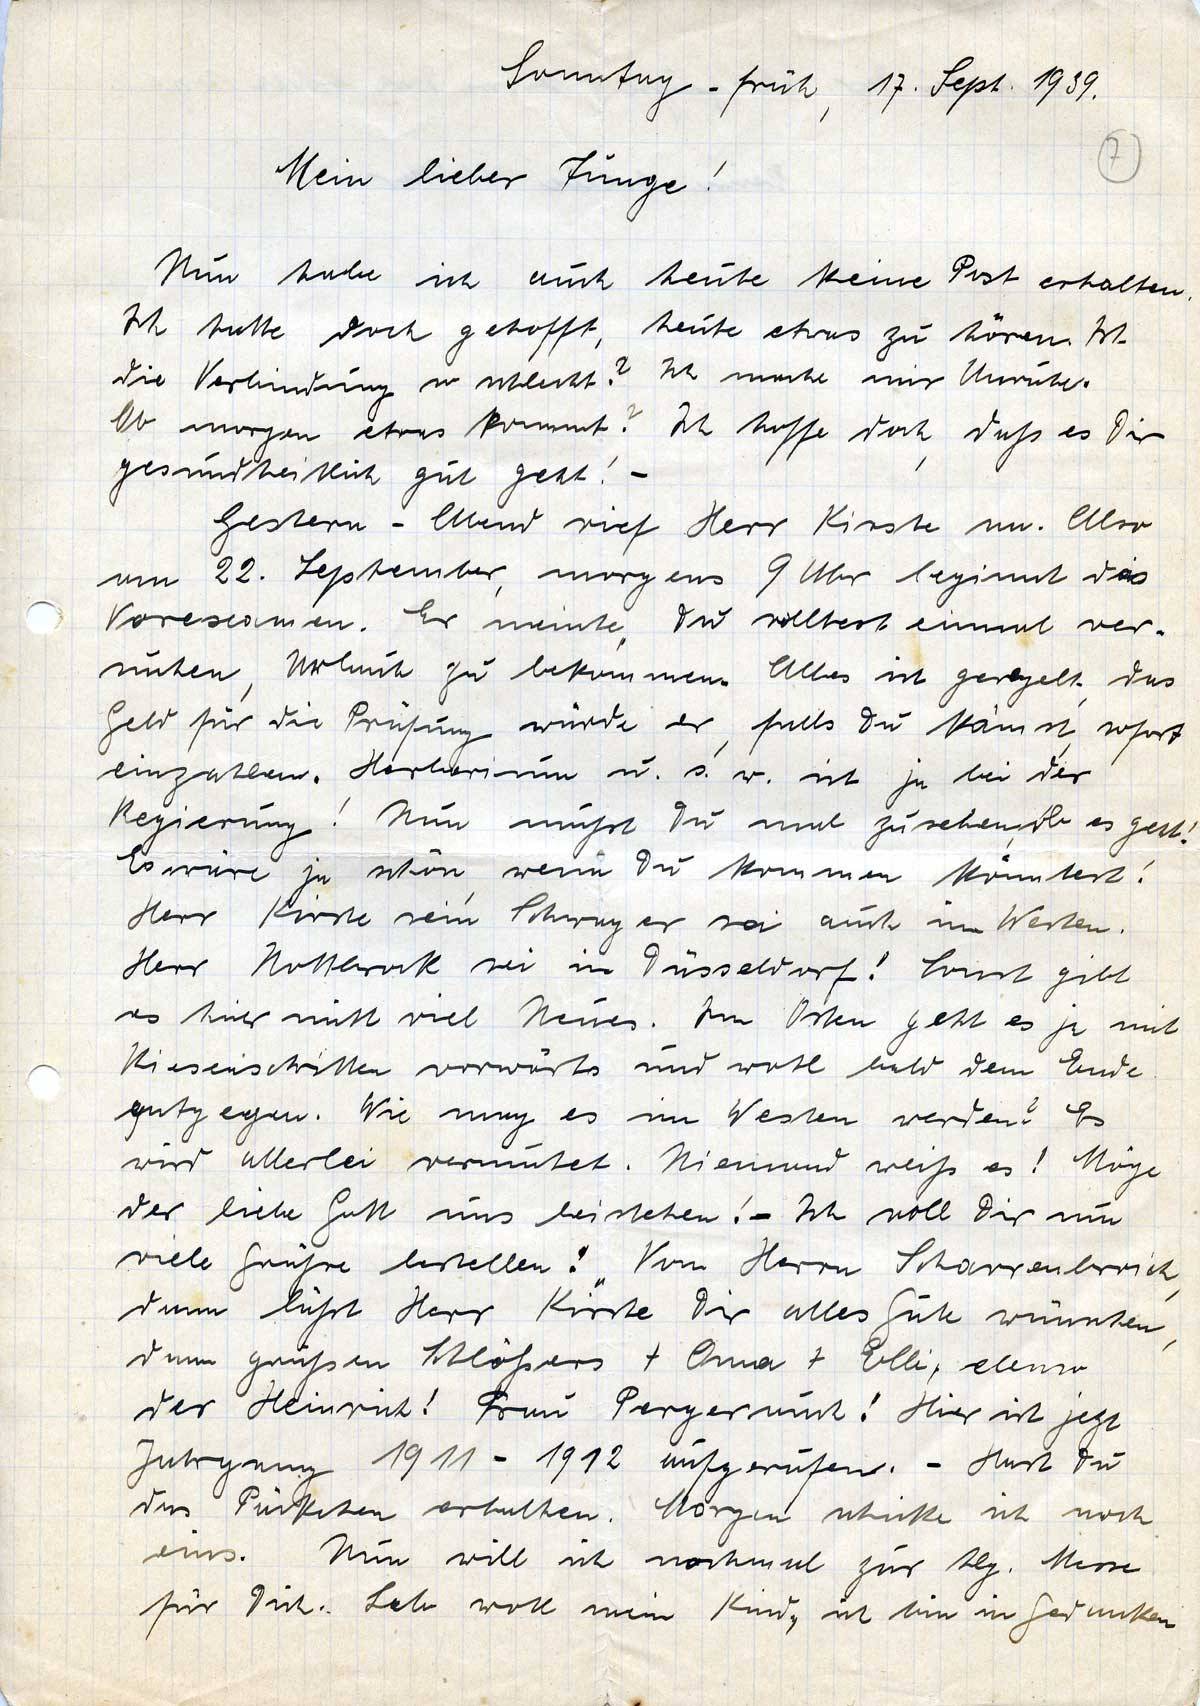 Sonntag - früh, 17. Sept. 1939.
7
Mein lieber Junge!
Nun habe ich auch heute keine Post erhalten.
Ich hatte doch gehofft, heute etwas zu hören. Ist
die Verbindung so schlecht? Ich mache mir Unruhe.
Ob morgen etwas kommt? Ich hoffe doch, daß es Dir
gesundheitlich gut geht! -
Gestern - Abend rief Herr Kirste an. Also
am 22. September, morgens 9 Uhr beginnt das
Vorexamen. Er meinte, Du solltest einmal ver-
suchen, Urlaub zu bekommen. Alles ist geregelt, das
Geld für die Prüfung würde er, falls Du kämst, sofort
einzahlen. Herbarium u. s. w. ist ja bei der
Regierung! Nun mußt Du mal zusehen, ob es geht!
Es wäre ja schön, wenn Du kommen könntest!
Herr Kirste sein Schwager sei auch im Westen.
Herr Nottbrock sei in Düsseldorf! Sonst gibt
es hier nicht viel Neues. Im Osten geht es ja mit
Riesenschritten vorwärts und wohl bald dem Ende
entgegen. Wie mag es im Westen werden? Es
wird allerlei vermutet. Niemand weiß es! Möge
der liebe Gott uns beistehen! - Ich soll Dir nun
viele Grüße bestellen! Von Herrn Scharrenbroich,
dann läßt Herr Kirste Dir alles Gute wünschen,
dann grüßen Schlößers + Oma + Elli, ebenso
der Heinrich! Frau Perger auch! Hier ist jetzt
Jahrgang 1911 - 1912 aufgerufen. - Hast Du
das Päckchen erhalten. Morgen schicke ich noch
eins. Nun will ich nochmal zur hlg. Messe
für Dich. Leb wohl mein Kind, ich bin in Gedanken